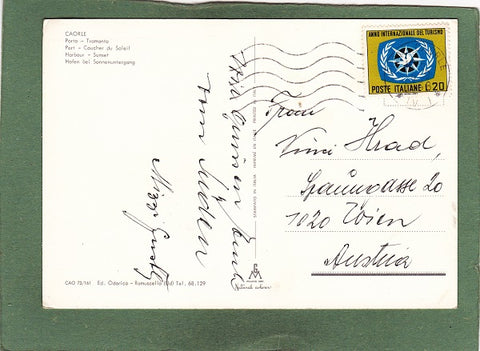 CAORLE
Porto - Tramonto
Port - Coucher du Soleil
Harbour - Sunset
Hafen bei Sonnenuntergang
ANNO INTERNAZIONALE DEL TURISMO
POSTE ITALIANE L.20
Frau
Hrad,
20
1020 Wien
Austria
vom Süden
Mizzi
CAO 72/161 Ed. Odorico - Ramuscello (Ud) Tel. 68.129